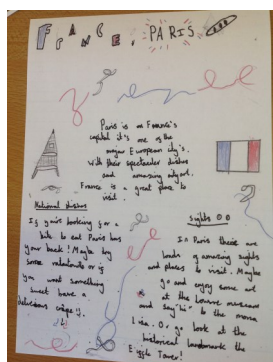 FRANCE, PARIS
Paris is on France's
capital it's one of the
major European city's.
With their spectacular dishes
and amazing airport.
France is a great place to
visit.
National dishes
If your looking for a
bite to eat Paris has
your back! Maybe try
some ratatouille or is
you want something
sweet have a
delicious crêpe
Sights
In Paris there are
loads of amazing sights
and places to visit. Maybe
go and enjoy some art
at the Louvre museum
and say "hi" to the mona
Lisa. Or, go look at the
historical landmark the
Eiffle Tower!